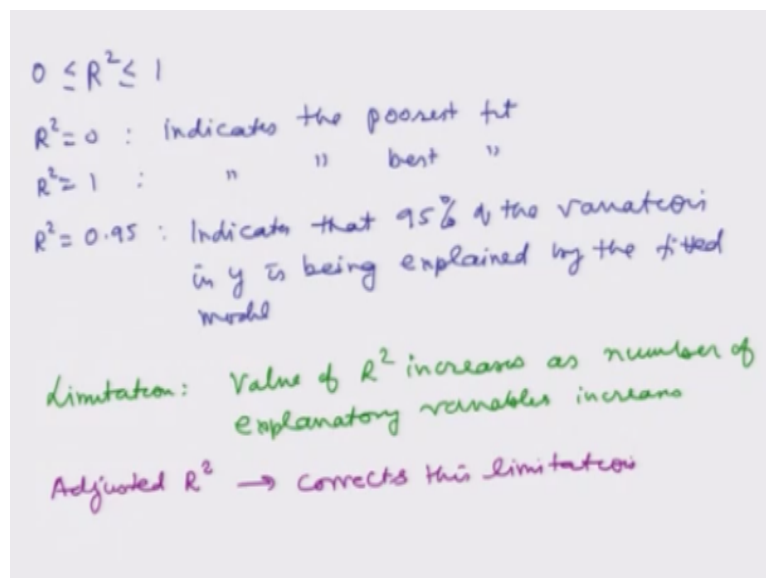 0 ≤ R² ≤ 1
R² = 0 : indicates the poorest fit
R² = 1 : " " best "
R² = 0.95 : Indicates that 95% of the variation
in y is being explained by the fitted
model
Limitation: Value of R² increases as number of
explanatory variables increases
Adjusted R² → corrects this limitation